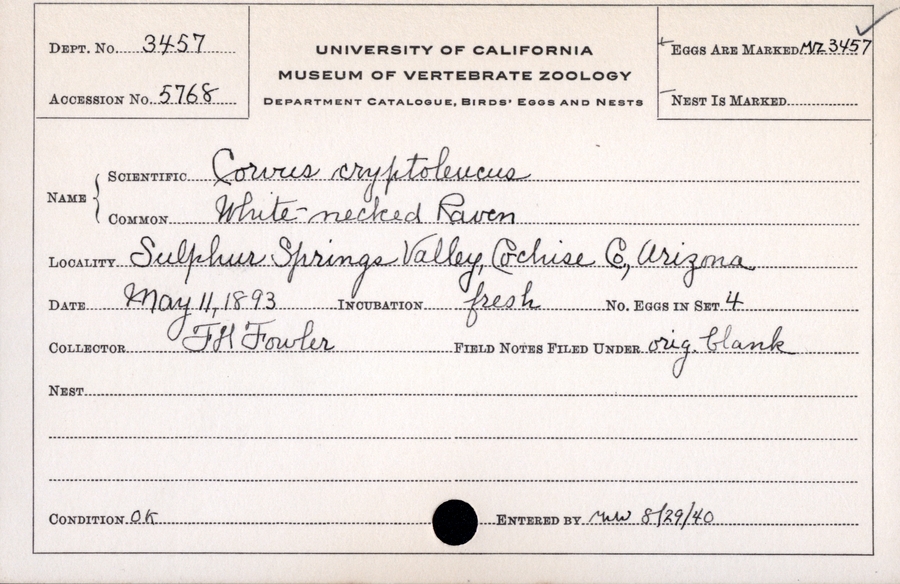 DEPT. No. 3457
ACCESSION No. 5768
UNIVERSITY OF CALIFORNIA
MUSEUM OF VERTEBRATE ZOOLOGY
DEPARTMENT CATALOGUE, BIRDS' EGGS AND NESTS
EGGS ARE MARKED MVZ 3457
NEST IS MARKED
NAME
SCIENTIFIC Corvus cryptoleucus
COMMON White-necked Raven
LOCALITY Sulphur Springs Valley, Cochise Co, Arizona
DATE May 11, 1893 INCUBATION fresh No. EGGS IN SET 4
COLLECTOR FH Fowler FIELD NOTES FILED UNDER orig. blank
NEST
CONDITION OK ENTERED BY 8/29/40